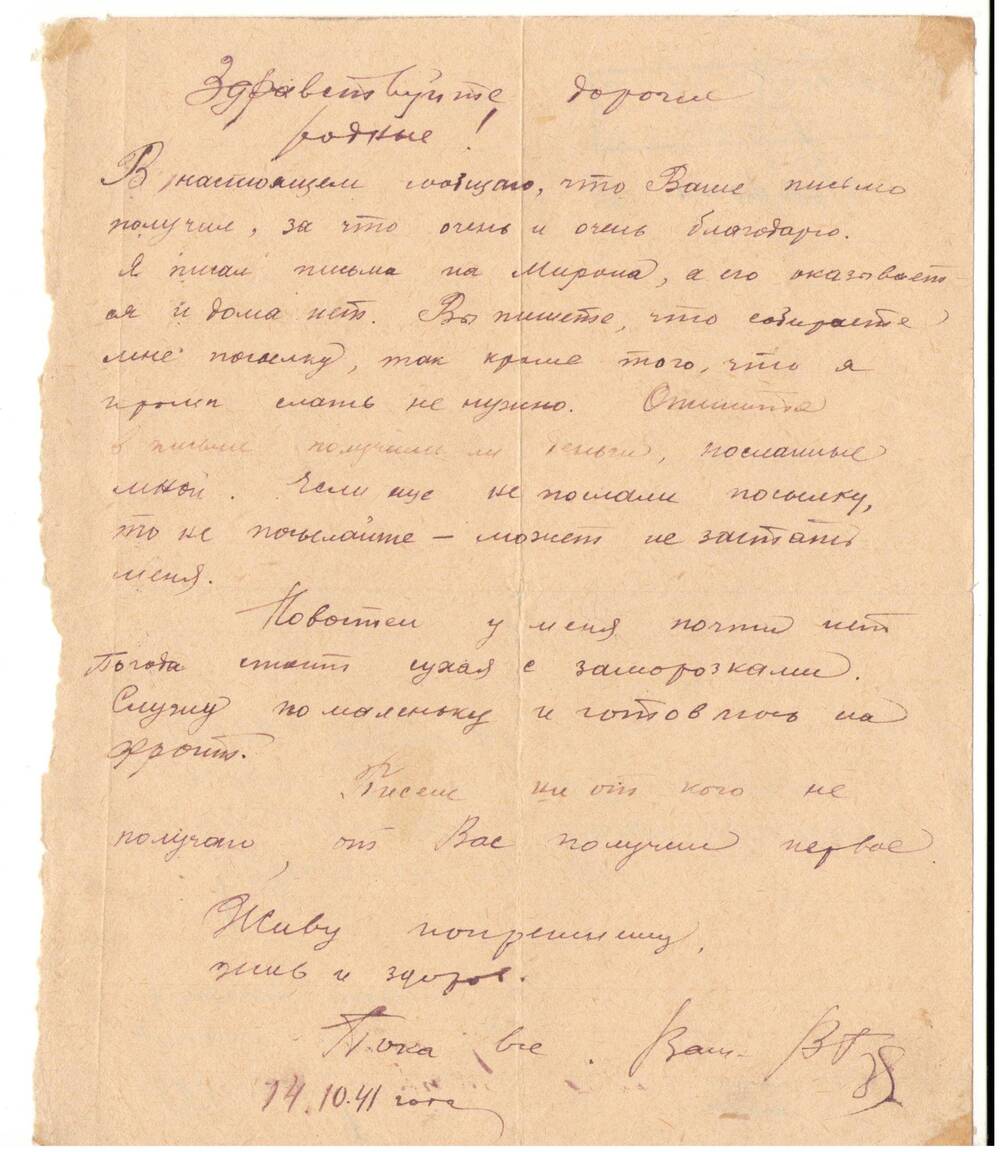 Здравствуйте дорогие
родные!
В настоящем сообщаю, что Ваше письмо
получил, за что очень и очень благодарю.
Я писал письма на Мирона, а его оказывает-
ся и дома нет. Вы пишете, что собираете
мне посылку, так кроме того, что я
слать не нужно. Опишите
в письме получили ли деньги, посланные
мной. Если еще не послали посылку,
то не посылайте – может не застать
меня.
Новостей у меня почти нет
Погода стоит сухая с заморозками.
Служу помаленьку и готовлюсь на
фронт.
Писем ни от кого не
получаю, от Вас получил первое
Живу попрежнему,
жив и здоров.
Пока все. Ваш
14.10.41 года